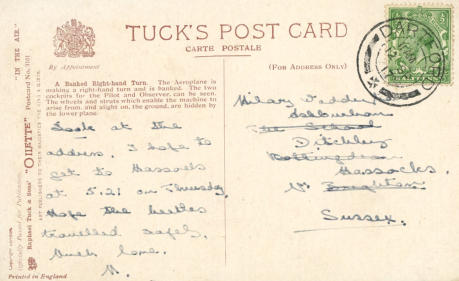 TUCK'S POST CARD
CARTE POSTALE
By Appointment
(FOR ADDRESS ONLY)
A Banked Right-hand Turn. The Aeroplane is
making a right-hand turn and is banked. The two
cockpits for the Pilot and Observer, can be seen.
The wheels and struts which enable the machine to
rise from, and alight on, the ground, are hidden by
the lower plane.
Look at the
address. I hope to
get to Hassocks
at 5.21 on Thursday.
Hope the beetles
travelled safely.
Much love.
Hilary
The School
Ditchley
Hassocks.
Nr Brighton
Sussex.
"IN THE AIR."
Postcard No. 3101
Raphael Tuck & Sons' "OILETTE"
ART PUBLISHERS TO THEIR MAJESTIES THE KING & QUEEN.
Printed in England